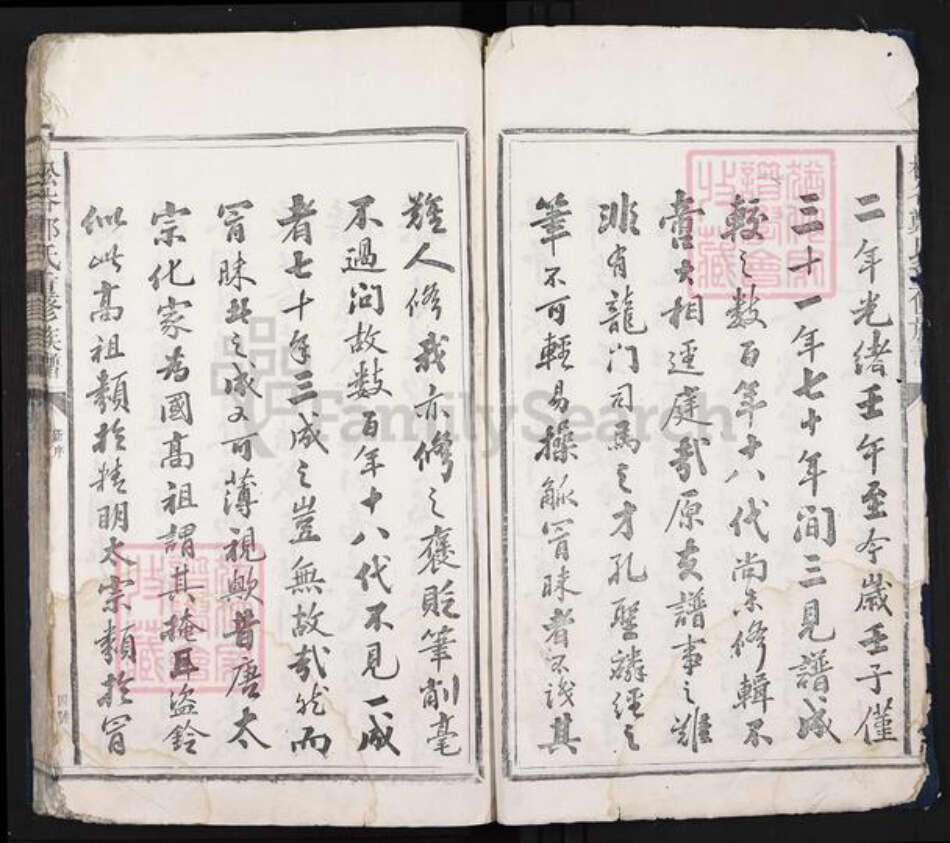 二年光緒壬午至今歲壬子僅
三十一年七十年間三見譜成
較之數百年十八代尚未修輯不
啻大相逕庭哉原夫譜事之難
非有龍门司馬之才孔聖麟經之
筆不可輕易操觚冒昧者不識其
難人修我亦修之褒貶筆削毫
不過问故數百年十八代不見一成
者七十年三成之豈無故哉然而
冒昧其之成又可薄視歟昔唐太
宗化家為國高祖謂其掩耳盜鈴
似此高祖類於精明太宗類於冒
氏首修族譜
FamilySearch
收藏